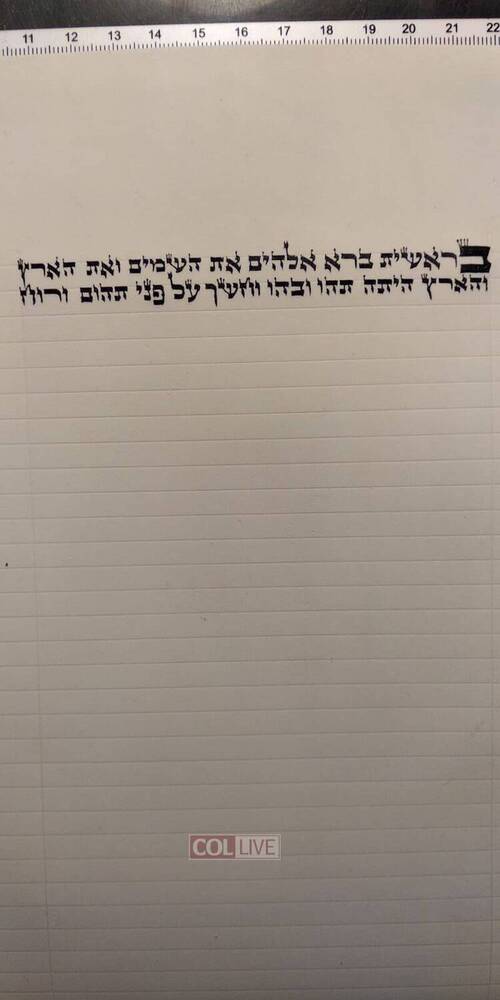 11 12 13 14 15 16 17 18 19 20 21 22
בראשית ברא אלהים את השמים ואת הארץ
והארץ היתה תהו ובהו וחשך על פני תהום ורוח
COL LIVE